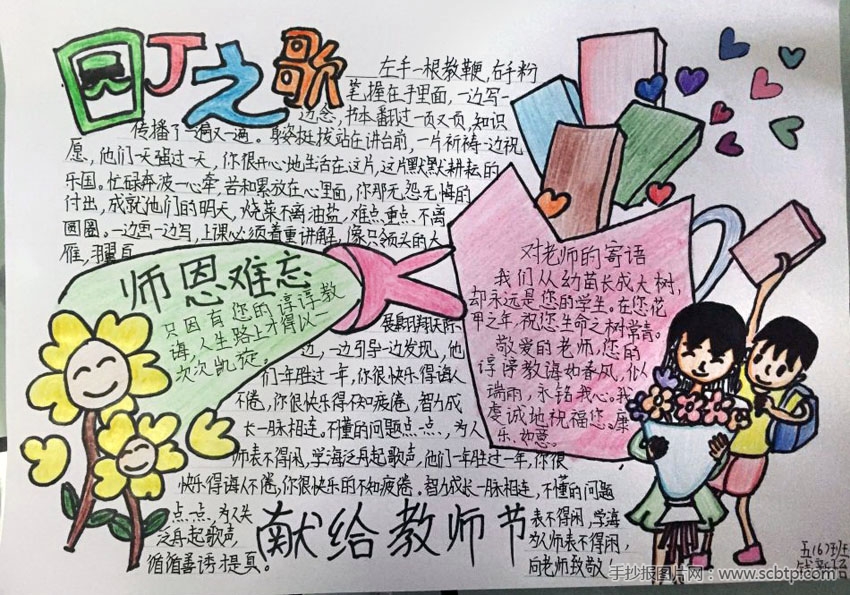 园丁之歌
左手一根教鞭，右手粉
笔，握在手里面，一边写一
边念，书本翻过一页又一页，知识
传播了一遍又一遍。身姿挺拔站在讲台前，一片祈祷一边祝
愿，他们一天强过一天，你很开心地生活在这片，这片默默耕耘的
乐园。忙碌奔波一心牵，苦和累放在心里面，你那无怨无悔的
付出，成就他们的明天，烧菜不离油盐，难点重点、不离
圆圈。一边画一边写，上课必须着重讲解，像只领头的大
雁，
师恩难忘
只因有您的谆谆教
诲，人生路上才得以一
次次凯旋。
展翅翱翔天际
边，一边引导一边发现，他
们一年胜过一年，你很快乐得诲人
不倦，你很快乐得不知疲倦，智力成
长一脉相连。不懂的问题点一点、为人
师表不得闲，学海泛舟起歌声，他们一年胜过一年，你很
快乐得诲人不倦，你很快乐的不知疲倦。智力成长一脉相连，不懂的问题
点一点、为人
泛舟起歌声，
循循善诱提真。
献给教师节
表不得闲，学海
为人师表不得闲，
向老师致敬！
对老师的寄语
我们从幼苗长成大树，
却永远是您的学生。在您花
甲之年，祝您生命之树常青。
敬爱的老师，您的
谆谆教诲如春风，似
瑞雨，永铭我心。我
虔诚地祝福您。康
乐、如意。
五(6)班
手抄报图片网：www.scbtp.com